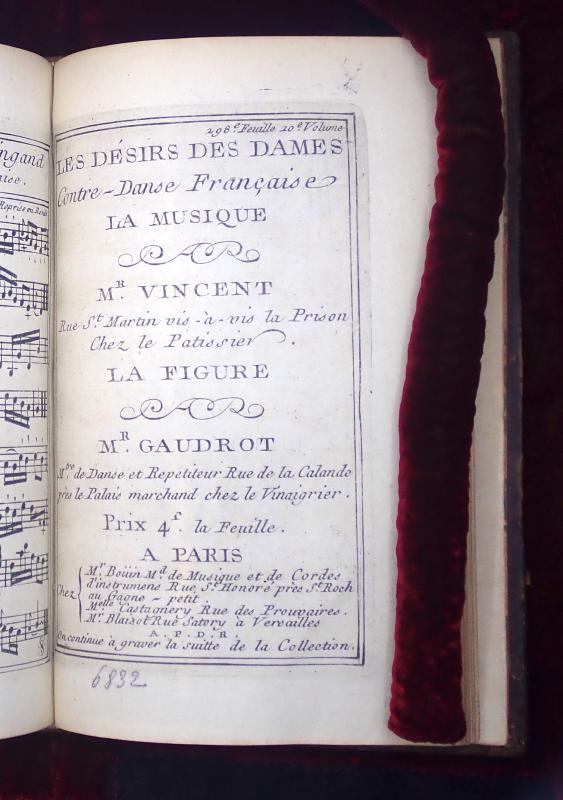 ngand
aise.
Reprise en Rond
298.e Feuille 20.e Volume
LES DÉSIRS DES DAMES
Contre-Danse Française
LA MUSIQUE
MR. VINCENT
Rue St. Martin vis-à-vis la Prison
Chez le Patissier.
LA FIGURE
MR. GAUDROT
Mtre de Danse et Repetiteur Rue de la Calando
près le Palais marchand chez le Vinaigrier.
Prix 4f. la Feuille.
A PARIS
Chez
Mr. Boüin Md. de Musique et de Cordes
d'instrumens Rue St. Honoré près St. Roch
au Gagne-petit
Melle Castagnery Rue des Prouvaires.
Mr. Blaizot Rue Satory à Versailles
A. P. D. R.
On continue à graver la suitte de la Collection.
6832